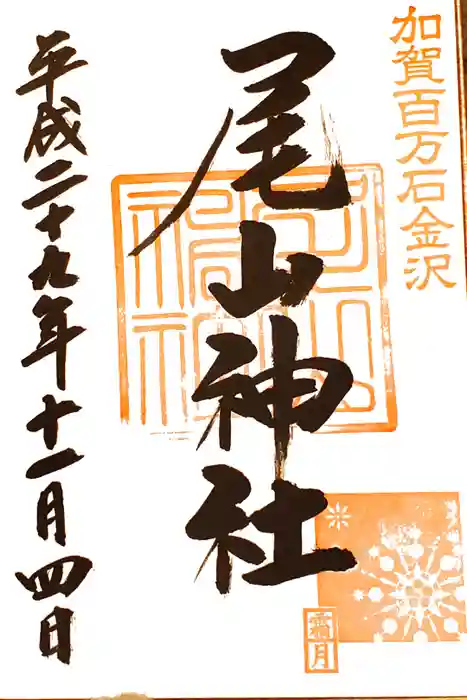 加賀百万石金沢
尾山神社
平成二十九年十一月四日
霜月